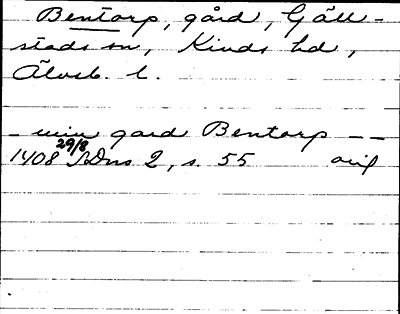 Bentorp, gård, Gäll-
stads sn, Kinds hd,
Älvsb. l.
– min gard Bentorp – –
1408 29/8 SDns 2, s. 55 orig